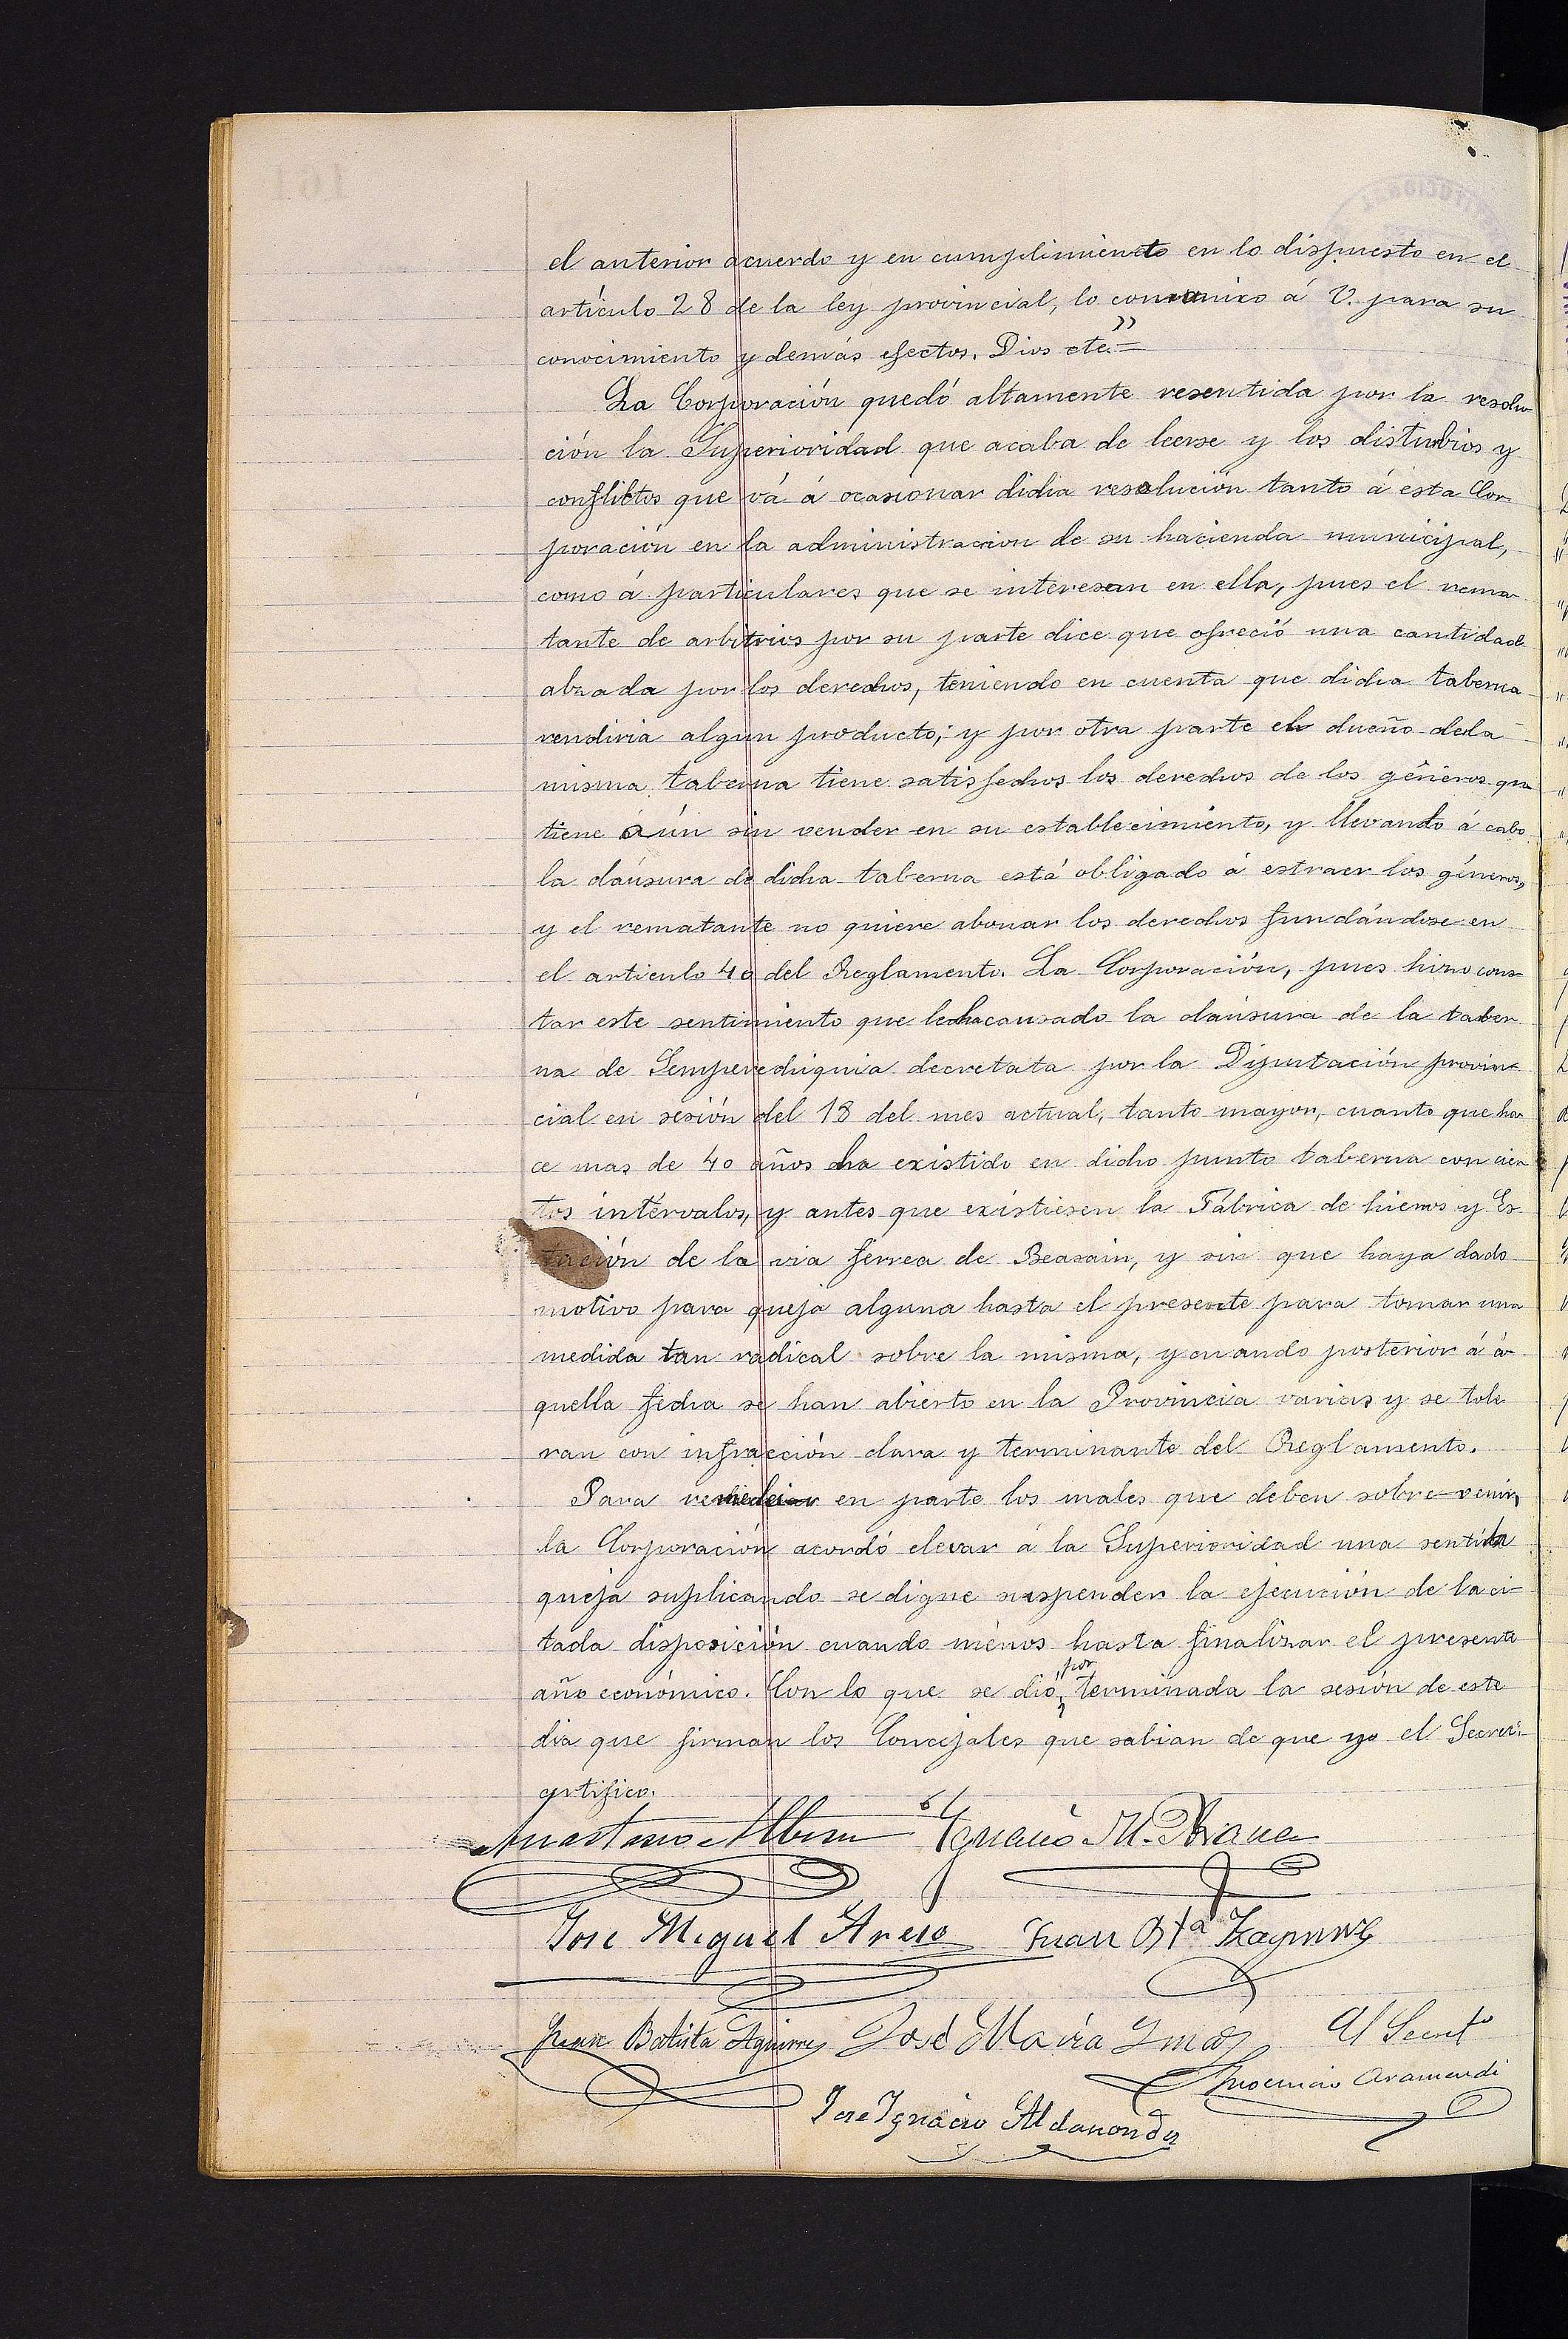 el anterior acuerdo y en cumplimiento en lo dispuesto en el
artículo 28 de la ley provincial, lo comunico á V. para su
conocimiento y demás efectos. Dios etc."=
La Corporación quedó altamente resentida por la resolu
ción la Superioridad que acaba de leerse y los disturbios y
conflictos que vá á ocasionar dicha resolución tanto á esta Cor
poración en la administracion de su hacienda municipal,
como á particulares que se interesan en ella, pues el rema
tante de arbitrios por su parte dice que ofreció una cantidad
alzada por los derechos, teniendo en cuenta que dicha taberna
rendiria algun producto; y por otra parte el dueño dela
misma taberna tiene satisfechos los derechos de los géneros que
tiene aún sin vender en su establecimiento, y llevando á cabo
la clausura de dicha taberna está obligado á estraer los géneros,
y el rematante no quiere abonar los derechos fundándose en
el articulo 40 del Reglamento. La Corporación, pues hizo cons
tar este sentimiento que le ha causado la claúsura de la taber
na de Semperechiquia decretata por la Diputación provin
cial en sesión del 18 del mes actual, tanto mayor, cuanto que ha
ce mas de 40 años ha existido en dicho punto taberna con cier
tos intérvalos, y antes que existiesen la Fábrica de hierros y Es
tación de la via ferrea de Beasain, y sin que haya dado
motivo para queja alguna hasta el presente para tomar una
medida tan radical sobre la misma, y cuando posterior á a
quella fecha se han abierto en la Provincia varias y se tole
ran con infracción clara y terminante del Reglamento.
Para remediar en parte los males que deben sobrevenir,
la Corporación acordó elevar á la Superioridad una sentida
queja suplicando se digne suspender la ejecución de la ci
tada disposición cuando ménos hasta finalizar el presente
año económico. Con lo que se dió "por terminada la sesión de este
dia que firman los Concejales que sabian de que yo el Secret.
certifico.
Anastasio Albisu Ignacio M. Arana
José Miguel Areso Juan Bta
Juan Batista Aguirre José Maria Imaz El Secret.º
Inocencio Aramendi
Jose Ignacio Aldanondo